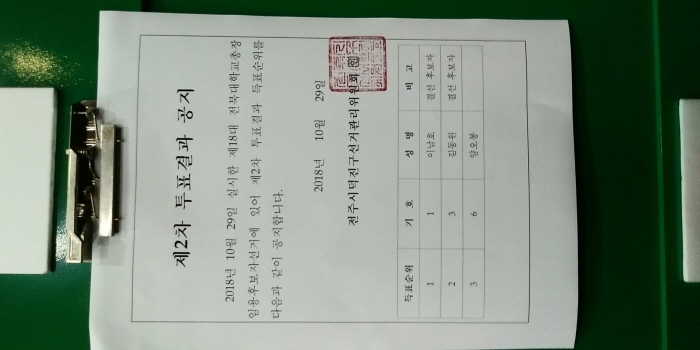 제2차 투표결과 공지
2018년 10월 29일 실시한 제18대 전북대학교총장
임용후보자선거에 있어 제2차 투표결과 득표순위를
다음과 같이 공지합니다.
2018년 10월 29일
전주시덕진구선거관리위원회
득표순위 기 호 성 명 비 고
1 1 이남호 결선 후보자
2 3 김동원 결선 후보자
3 6 양오봉